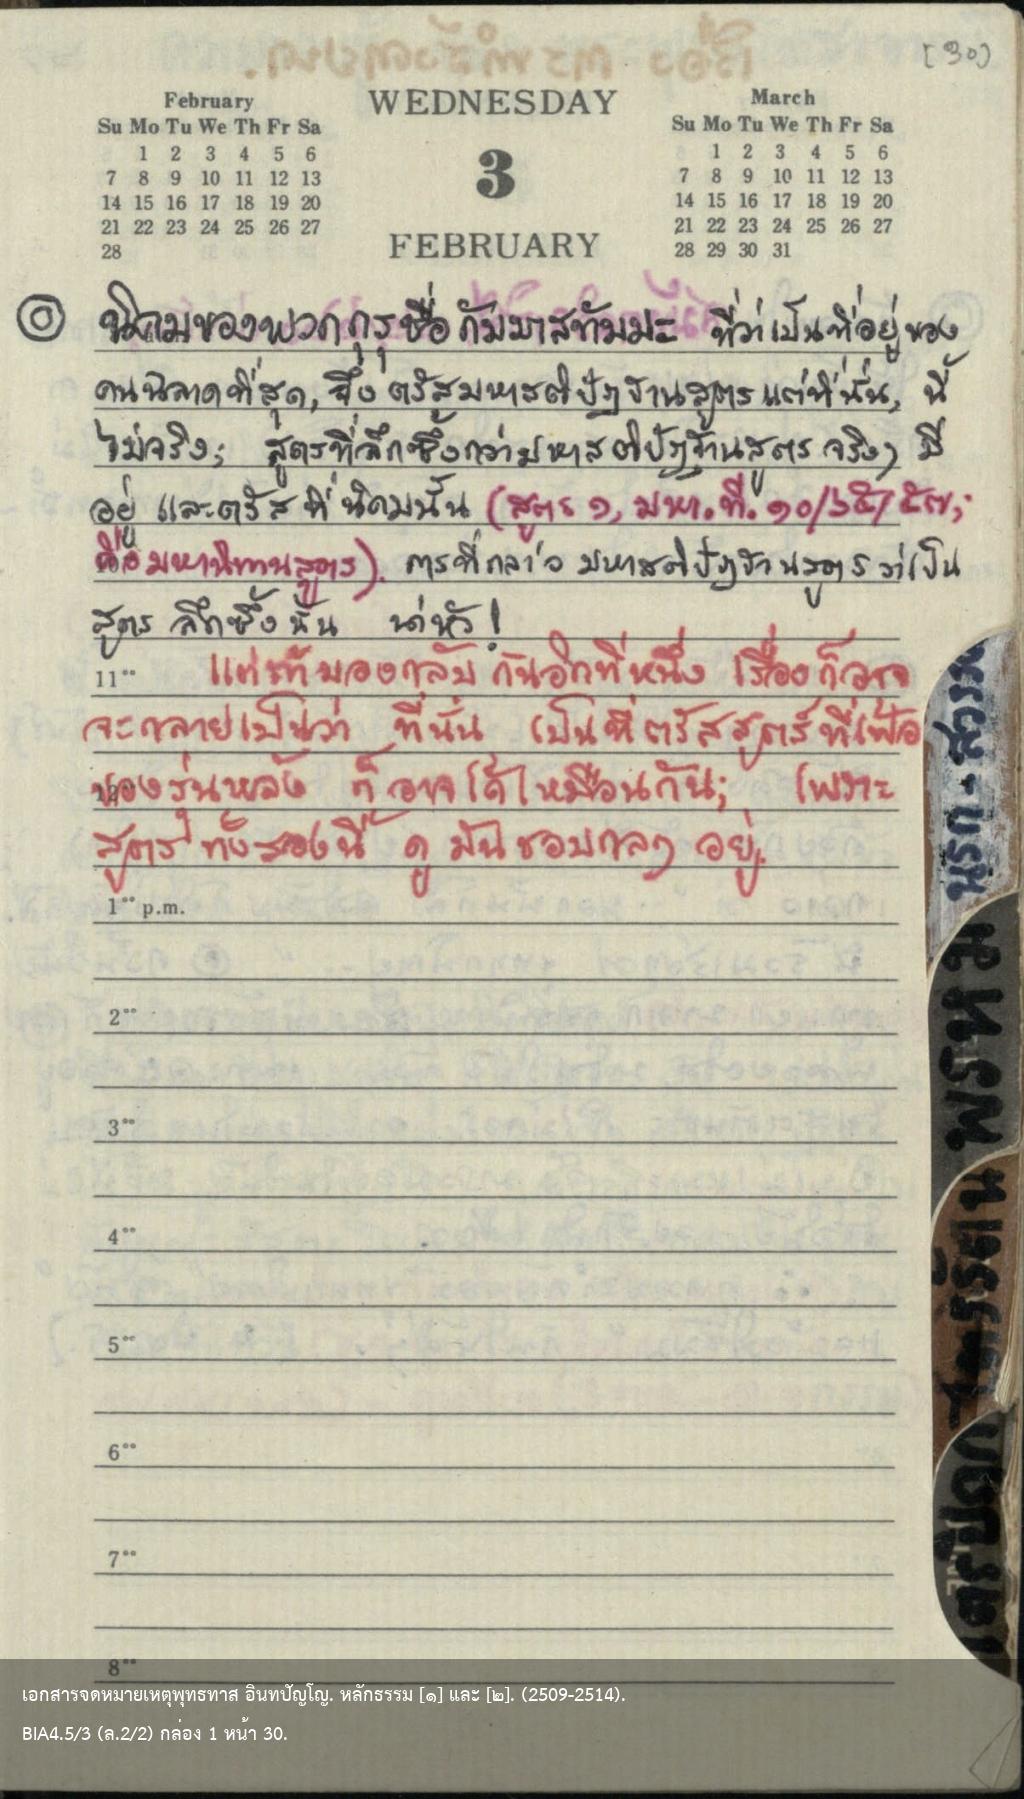 [30]
February
Su Mo Tu We Th Fr Sa
1 2 3 4 5 6
7 8 9 10 11 12 13
14 15 16 17 18 19 20
21 22 23 24 25 26 27
28
WEDNESDAY
3
FEBRUARY
March
Su Mo Tu We Th Fr Sa
1 2 3 4 5 6
7 8 9 10 11 12 13
14 15 16 17 18 19 20
21 22 23 24 25 26 27
28 29 30 31
นิคมของพวกกุรุชื่อกัมมาสทัมมะ ที่ว่าเป็นที่อยู่ของ
คนฉลาดที่สุด, จึงตรัสมหาสติปัฏฐานสูตรแต่ที่นั่น, นี้
ไม่จริง; สูตรที่ลึกซึ้งกว่ามหาสติปัฏฐานสูตรจริงๆ มี
อยู่ และตรัสที่นิคมนั้น (สูตร ๑, มหา.ที. ๑๐/๖๕/๕๗;
คือมหานิทานสูตร). การที่กล่าวมหาสติปัฏฐานสูตรว่าเป็น
สูตรลึกซึ้งนั้น น่าหัว!
11⁰⁰ แต่ถ้ามองกลับกันอีกทีหนึ่ง เรื่องก็อาจ
จะกลายเป็นว่า ที่นั่น เป็นที่ตรัสสูตร์ที่เฟ้อ
ของรุ่นหลัง ก็อาจได้เหมือนกัน; เพราะ
สูตร์ทั้งสองนี้ ดูมันชอบกลๆ อยู่.
1⁰⁰ p.m.
2⁰⁰
3⁰⁰
4⁰⁰
5⁰⁰
6⁰⁰
7⁰⁰
8⁰⁰
พรหม
เอกสารจดหมายเหตุพุทธทาส อินทปัญโญ. หลักธรรม [๑] และ [๒]. (2509-2514).
BIA4.5/3 (ล.2/2) กล่อง 1 หน้า 30.